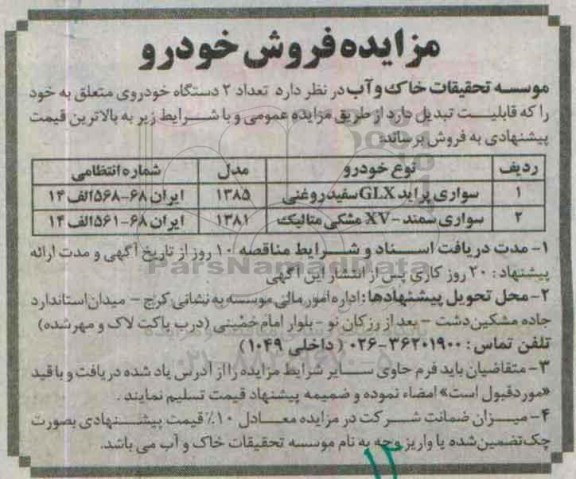 مزایده فروش خودرو
موسسه تحقیقات خاک و آب در نظر دارد تعداد ۲ دستگاه خودروی متعلق به خود
را که قابلیت تبدیل دارد از طریق مزایده عمومی و با شرایط زیر به بالاترین قیمت
پیشنهادی به فروش برساند:
ردیف نوع خودرو مدل شماره انتظامی
۱ سواری پراید GLX سفید روغنی ۱۳۸۵ ایران ۶۸-۵۶۸الف ۱۴
۲ سواری سمند - XV مشکی متالیک ۱۳۸۱ ایران ۶۸-۵۶۱الف ۱۴
۱- مدت دریافت اسناد و شرایط مناقصه ۱۰ روز از تاریخ آگهی و مدت ارائه
پیشنهاد: ۲۰ روز کاری پس از انتشار این آگهی
ParsNamadData
۲- محل تحویل پیشنهادها: اداره امور مالی موسسه به نشانی کرج - میدان استاندارد
جاده مشکین دشت - بعد از رزکان نو - بلوار امام خمینی (درب پاکت لاک و مهر شده)
تلفن تماس: ۳۶۲۰۱۹۰۰-۰۲۶ (داخلی ۱۰۴۹)
۳- متقاضیان باید فرم حاوی سایر شرایط مزایده را از آدرس یاد شده دریافت و با قید
«مورد قبول است» امضاء نموده و ضمیمه پیشنهاد قیمت تسلیم نمایند.
۴- میزان ضمانت شرکت در مزایده معادل ۱۰٪ قیمت پیشنهادی بصورت
چک تضمین شده یا واریز وجه به نام موسسه تحقیقات خاک و آب می باشد.
۱۲